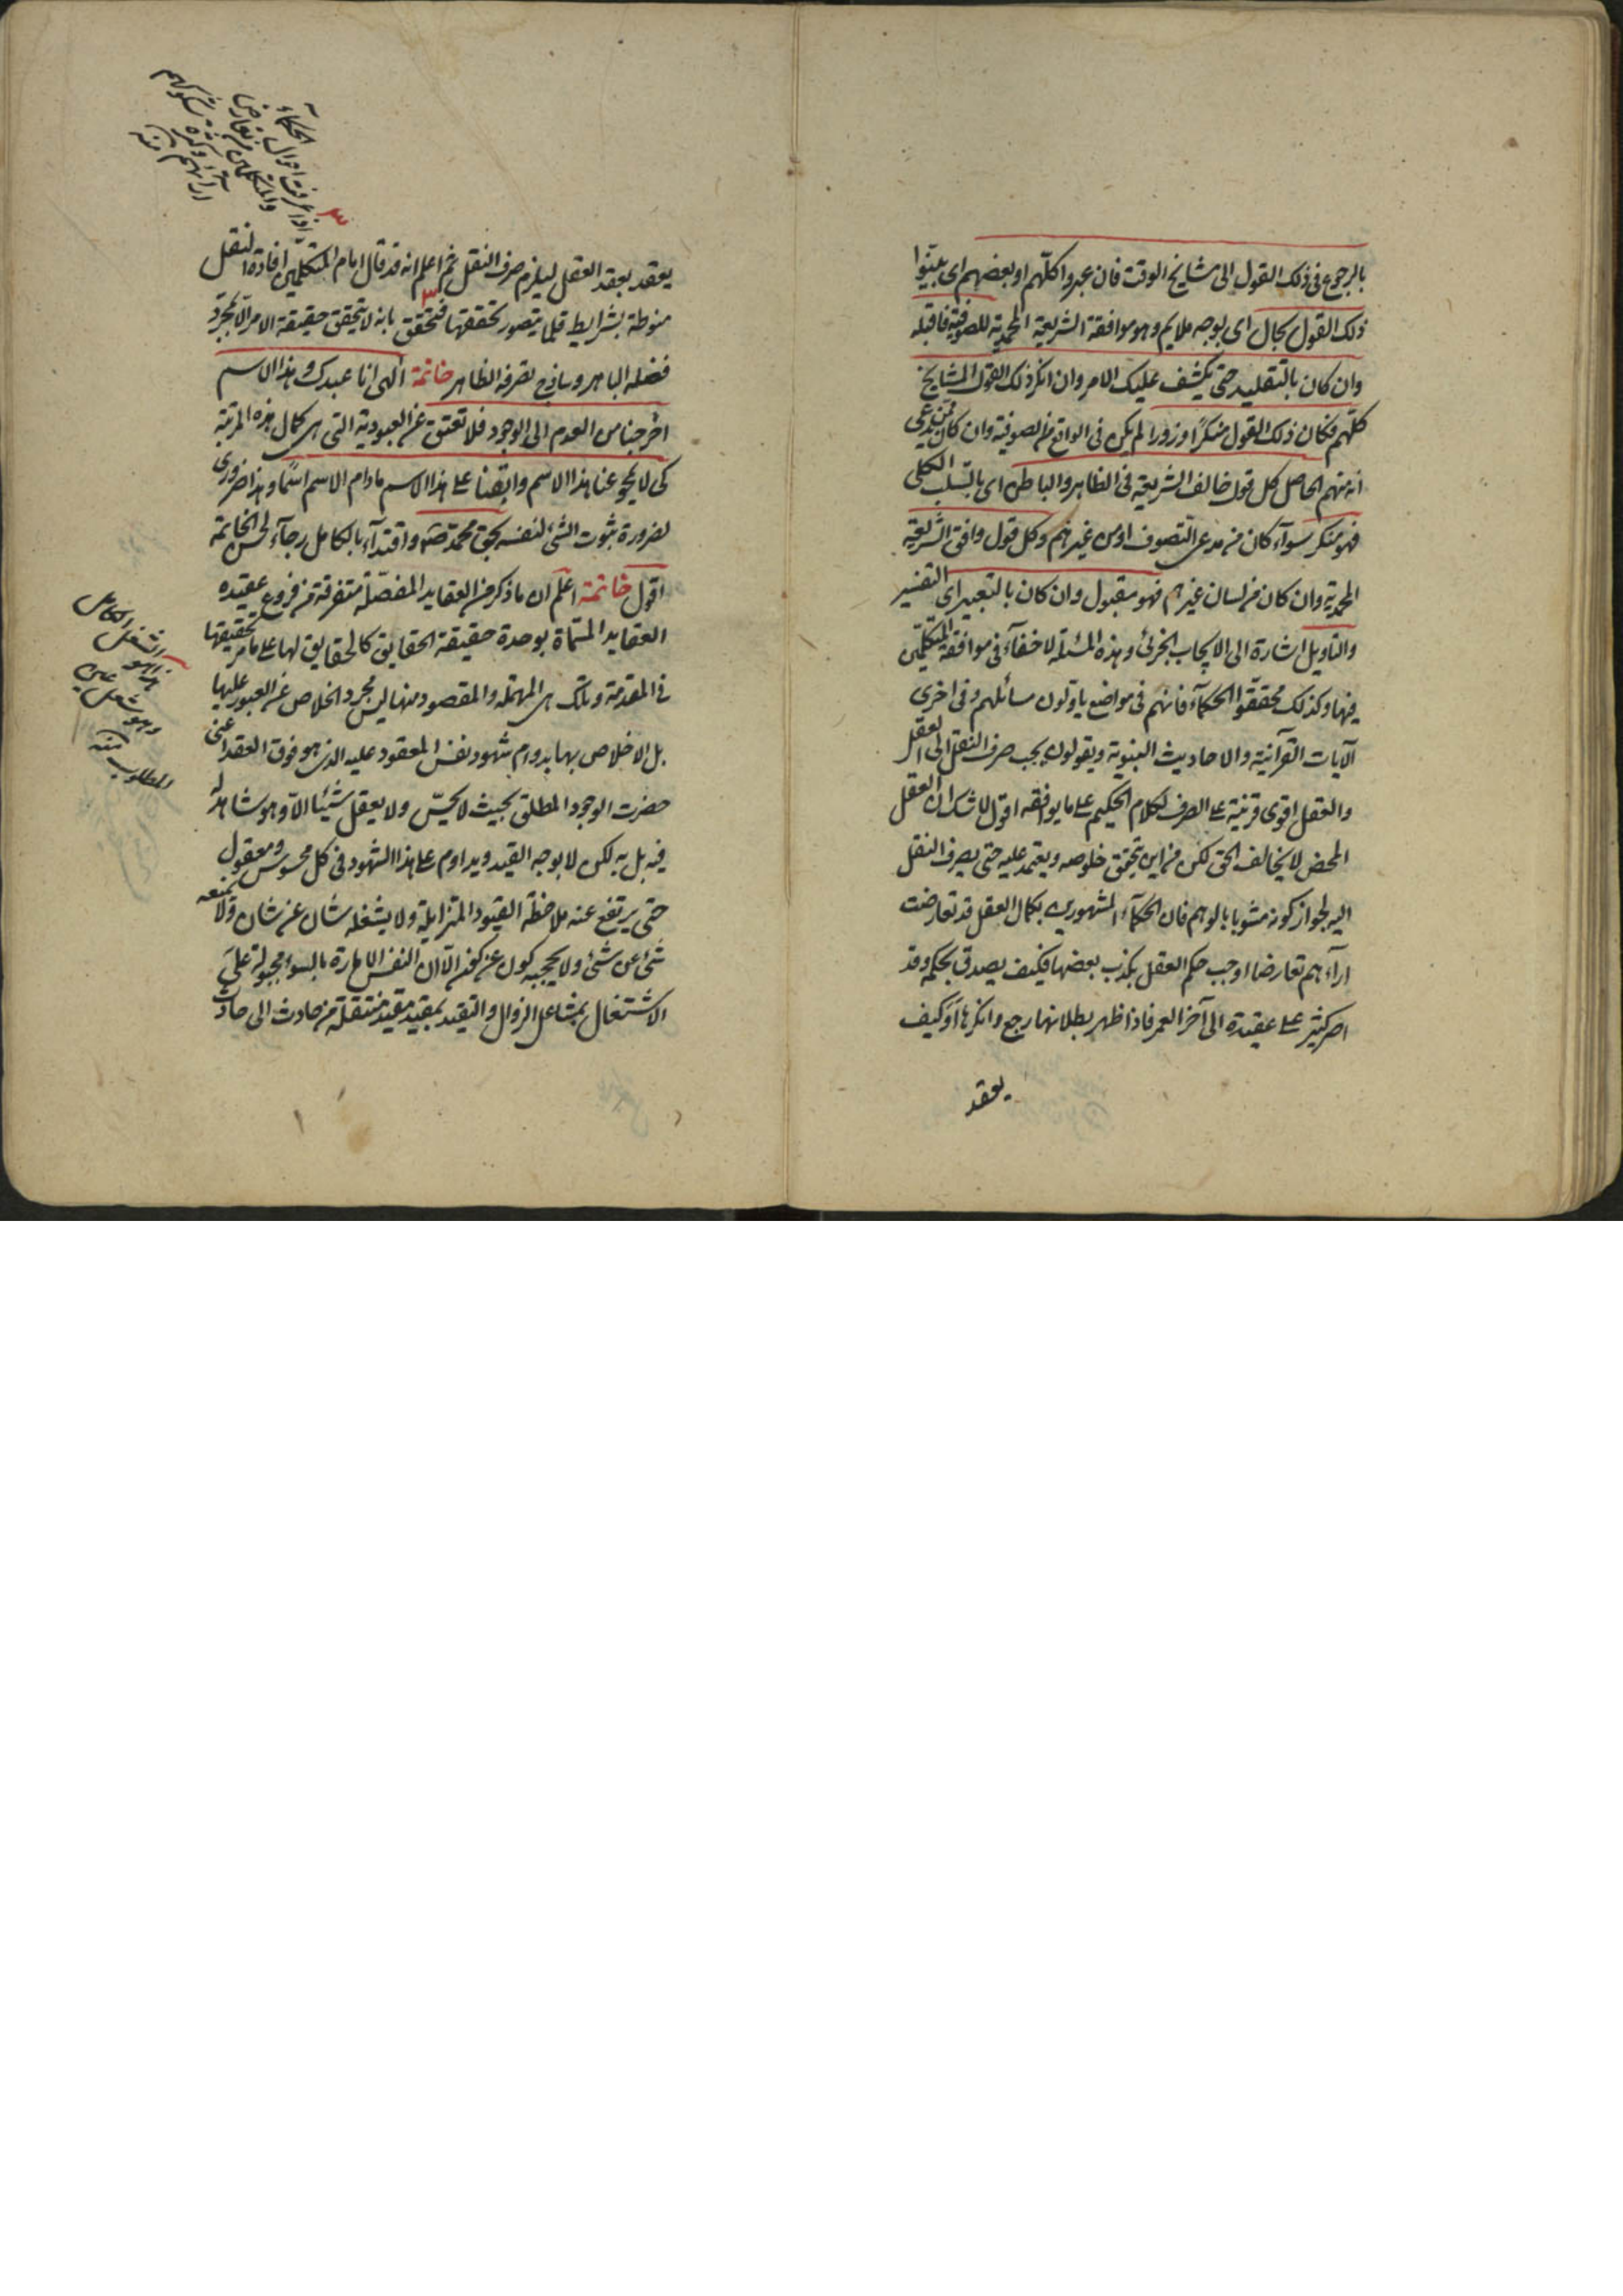 بالرجوع فى ذلك القول الى مشايخ الوقت فان عبروا كلّهم او بعضهم اى بيّنوا
ذلك القول بحال اى بوجه ملايم وهو موافقة الشريعة المحمدية للصوفية فاقبله
وان كان بالتقليد حتى يكشف عليك الامر وان انكر ذلك القول المشايخ
كلّهم فكان ذلك القول منكرًا وزورا لم يكن فى الواقع من الصوفية وان كان ممن يدعى
انه منهم الحاصل كل قول خالف الشريعة فى الظاهر والباطن اى بالسلب الكلى
فهو منكر سوآء كان من مدعى التصوف او من غيرهم وكل قول وافق الشريعة
المحمدية وان كان من لسان غيرهم فهو مقبول وان كان بالتعبير اى التفسير
والتاويل اشارة الى الايجاب الجزئى وهذه المسئلة لا خفآء فى موافقة المتكلمين
فيها وكذلك محققّوا الحكمآء فانهم فى مواضع ياولون مسائلهم وفى اخرى
الآيات القرآنية والاحاديث النبوية ويقولون يجب صرف النقل الى العقل
والعقل اقوى قرينة على الصرف لكلام الحكيم على ما يوافقه اقول لا شك ان العقل
المحض لا يخالف الحق لكن من اين يتحقق خلوصه ويعتمد عليه حتى يصرف النقل
اليه لجواز كونه مشوبا بالوهم فان الحكمآء المشهورين بكمال العقل قد تعارضت
ارآءهم تعارضا اوجب حكم العقل بكذب بعضها فكيف يصدق بحكمه وقد
اصر كثير على عقيدة الى آخر العمر فاذا ظهر بطلانها رجع وانكرها فكيف
يعقد
يعقد بعقد العقل ليلزم صرف النقل ثم اعلم انه قد قال امام المتكلمين افادة النقل
منوطة بشرايط قلما يتصور تحققها فتحقق بانه لا يتحقق حقيقة الامر الا بمجرد
فضله الباهر وساذج تصرفه الظاهر خاتمة الهى انا عبدك وهذا الاسم
اخرجنا من العدم الى الوجود فلا تعتق عن العبودية التى هى كمال هذه المرتبة
كى لا يمحو عنا هذا الاسم وابقنا على هذا الاسم ما دام الاسم اسمًا وهذا ضرورى
لضرورة ثبوت الشئ لنفسه بحق محمد واقتدآء بالكامل رجآء لحسن الخاتمة
اقول خاتمة اعلم ان ما ذكر من العقايد المفصّلة متفرقة من فروع عقيده
العقايد المسماة بوحدة حقيقة الحقايق كالحقايق لها على ما مر تحقيقها
فى المقدمة وتلك هى المهمّة والمقصود منها ليس مجرد الخلاص عن العبور عليها
بل الاخلاص بها بدوام شهود نفس المعقود عليه الذى هو فوق العقد اعنى
حضرت الوجود المطلق بحيث لا يحسّ ولا يعقل شيئا الا وهو شاهده
فيه بل به لكن لا بوجه القيد ويداوم على هذا الشهود فى كل محسوس ومعقول
حتى يرتفع عنه ملاحظة القيود المتزايلة ولا يشغله شان عن شان ولا يمنعه
شئ عن شئ ولا يحجبه كون عن كون الا ان النفس الامارة بالسوء مجبولة على
الاشتغال بمشاعل الزوال والتقيد بمقيد مقيد منتقلة من حادث الى حادث
اذا عرفت احوال الحكمآء
ارآئهم منه
المطلوب منه